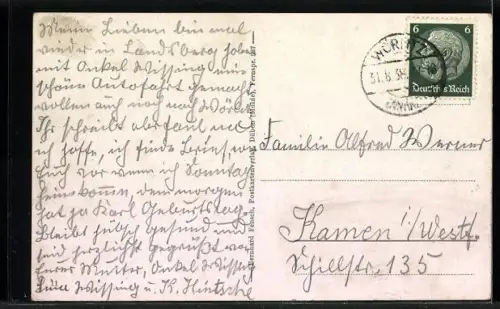 Meine Lieben bin mal
wieder in Landsberg haben
mit Onkel Wissing eine
schöne Autofahrt gemacht
wollen auch noch nach Wörlitz
Ihr schreibt aber faul na
ich hoffe, ich finde Brief von
Euch vor wenn ich Sonntag
heimkomme, denn morgen
hat ja Karl Geburtstag
Bleibt hübsch gesund und
seid herzlichst gegrüßt von
Eurer Mutter, Onkel Wissing
Wissing u. K. Hintsche
Postkartenverlag, Düben (Mulde), Fernspr.
6 6
Deutsches Reich
WÖRLITZ
31.8.38
Familie Alfred Werner
Kamen i/Westf.
Schillstr. 135